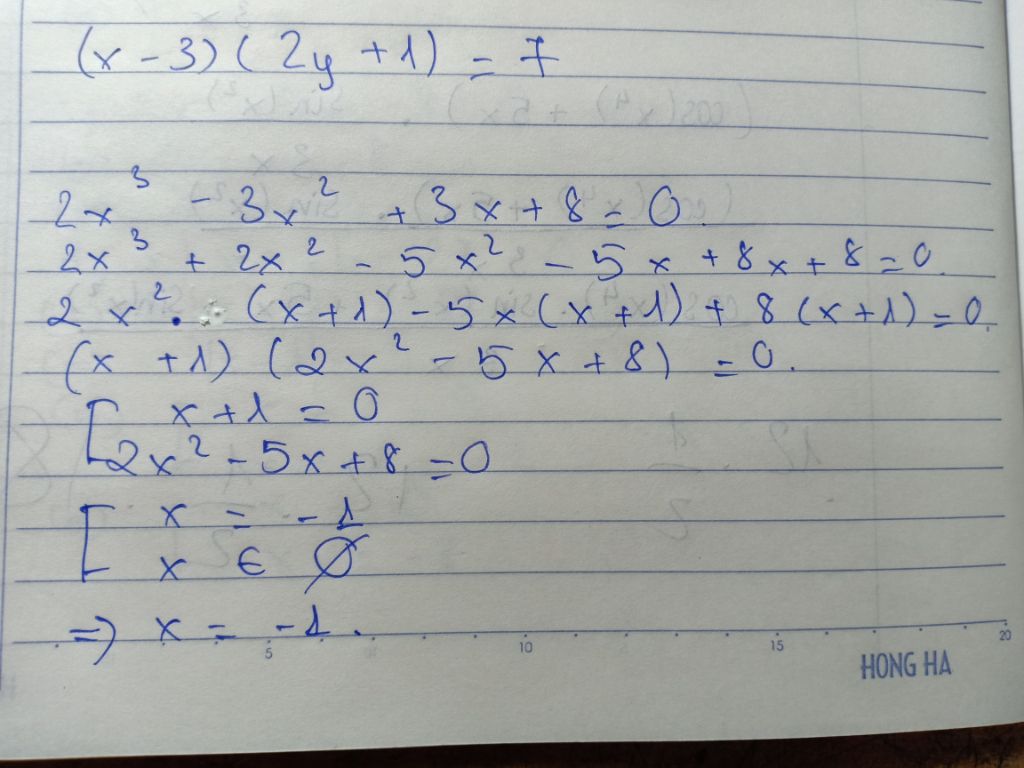 (x - 3) ( 2y + 1) = 7
2x³ - 3x² + 3x + 8 = 0.
2x³ + 2x² - 5x² - 5x + 8x + 8 = 0.
2x² . (x + 1) - 5x (x + 1) + 8 (x + 1) = 0.
(x + 1) (2x² - 5x + 8) = 0.
[ x + 1 = 0
2x² - 5x + 8 = 0
[ x = - 1
x ∈ Ø
=> x = - 1.
5 10 15 20
HONG HA